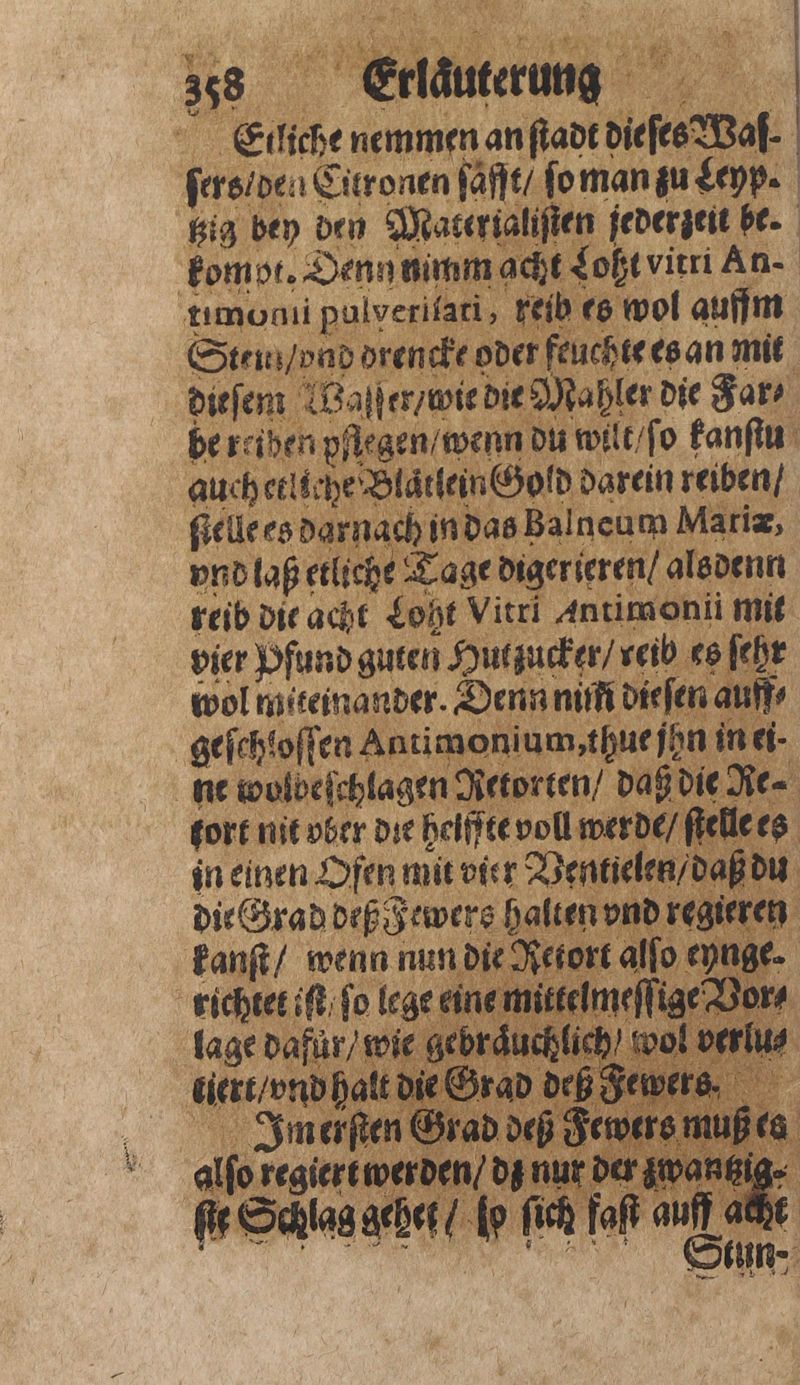 358 Erläuterung
Etliche nemmen an ſtadt dieſes Waſ-
ſers/den Citronen ſäfft/ ſo man zu Leyp-
tzig bey den Materialiſten jederzeit be-
kompt. Denn nimm acht Loht vitri An-
timonii pulveriſati, reib es wol auffm
Stein/vnd drencke oder feuchte es an mit
dieſem Waſſer/wie die Mahler die Far-
be reiben pflegen/wenn du wilt/ſo kanſtu
auch etliche Blätlein Gold darein reiben/
ſtelle es darnach in das Balneum Mariæ,
vnd laß etliche Tage digerieren/ alsdenn
reib die acht Loht Vitri Antimonii mit
vier Pfund guten Hutzucker/ reib es ſehr
wol miteinander. Denn nim̃ dieſen auff-
geſchloſſen Antimonium, thue jhn in ei-
ne wolbeſchlagen Retorten/ daß die Re-
tort nit vber die helffte voll werde/ ſtelle es
in einen Ofen mit vier Ventielen/daß du
die Grad deß Fewers halten vnd regieren
kanſt/ wenn nun die Retort alſo eynge-
richtet iſt/ ſo lege eine mittelmeſſige Vor-
lage dafür/ wie gebräuchlich/ wol verlu-
tiert/vnd halt die Grad deß Fewers.
Im erſten Grad deß Fewers muß es
alſo regiert werden/ dz nur der zwantzig-
ſte Schlag gehet/ ſo ſich faſt auff acht
Stun-